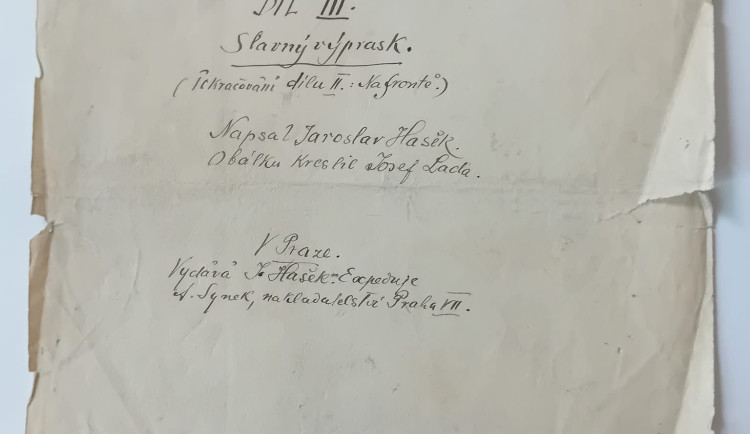 DÍL III.
Slavný výprask.
(Pokračování dílu II.: Na frontě.)
Napsal Jaroslav Hašek.
Obálku kreslil Josef Lada.
V Praze.
Vydává J. Hašek. Expeduje
A. Synek, nakladatelství Praha VII.